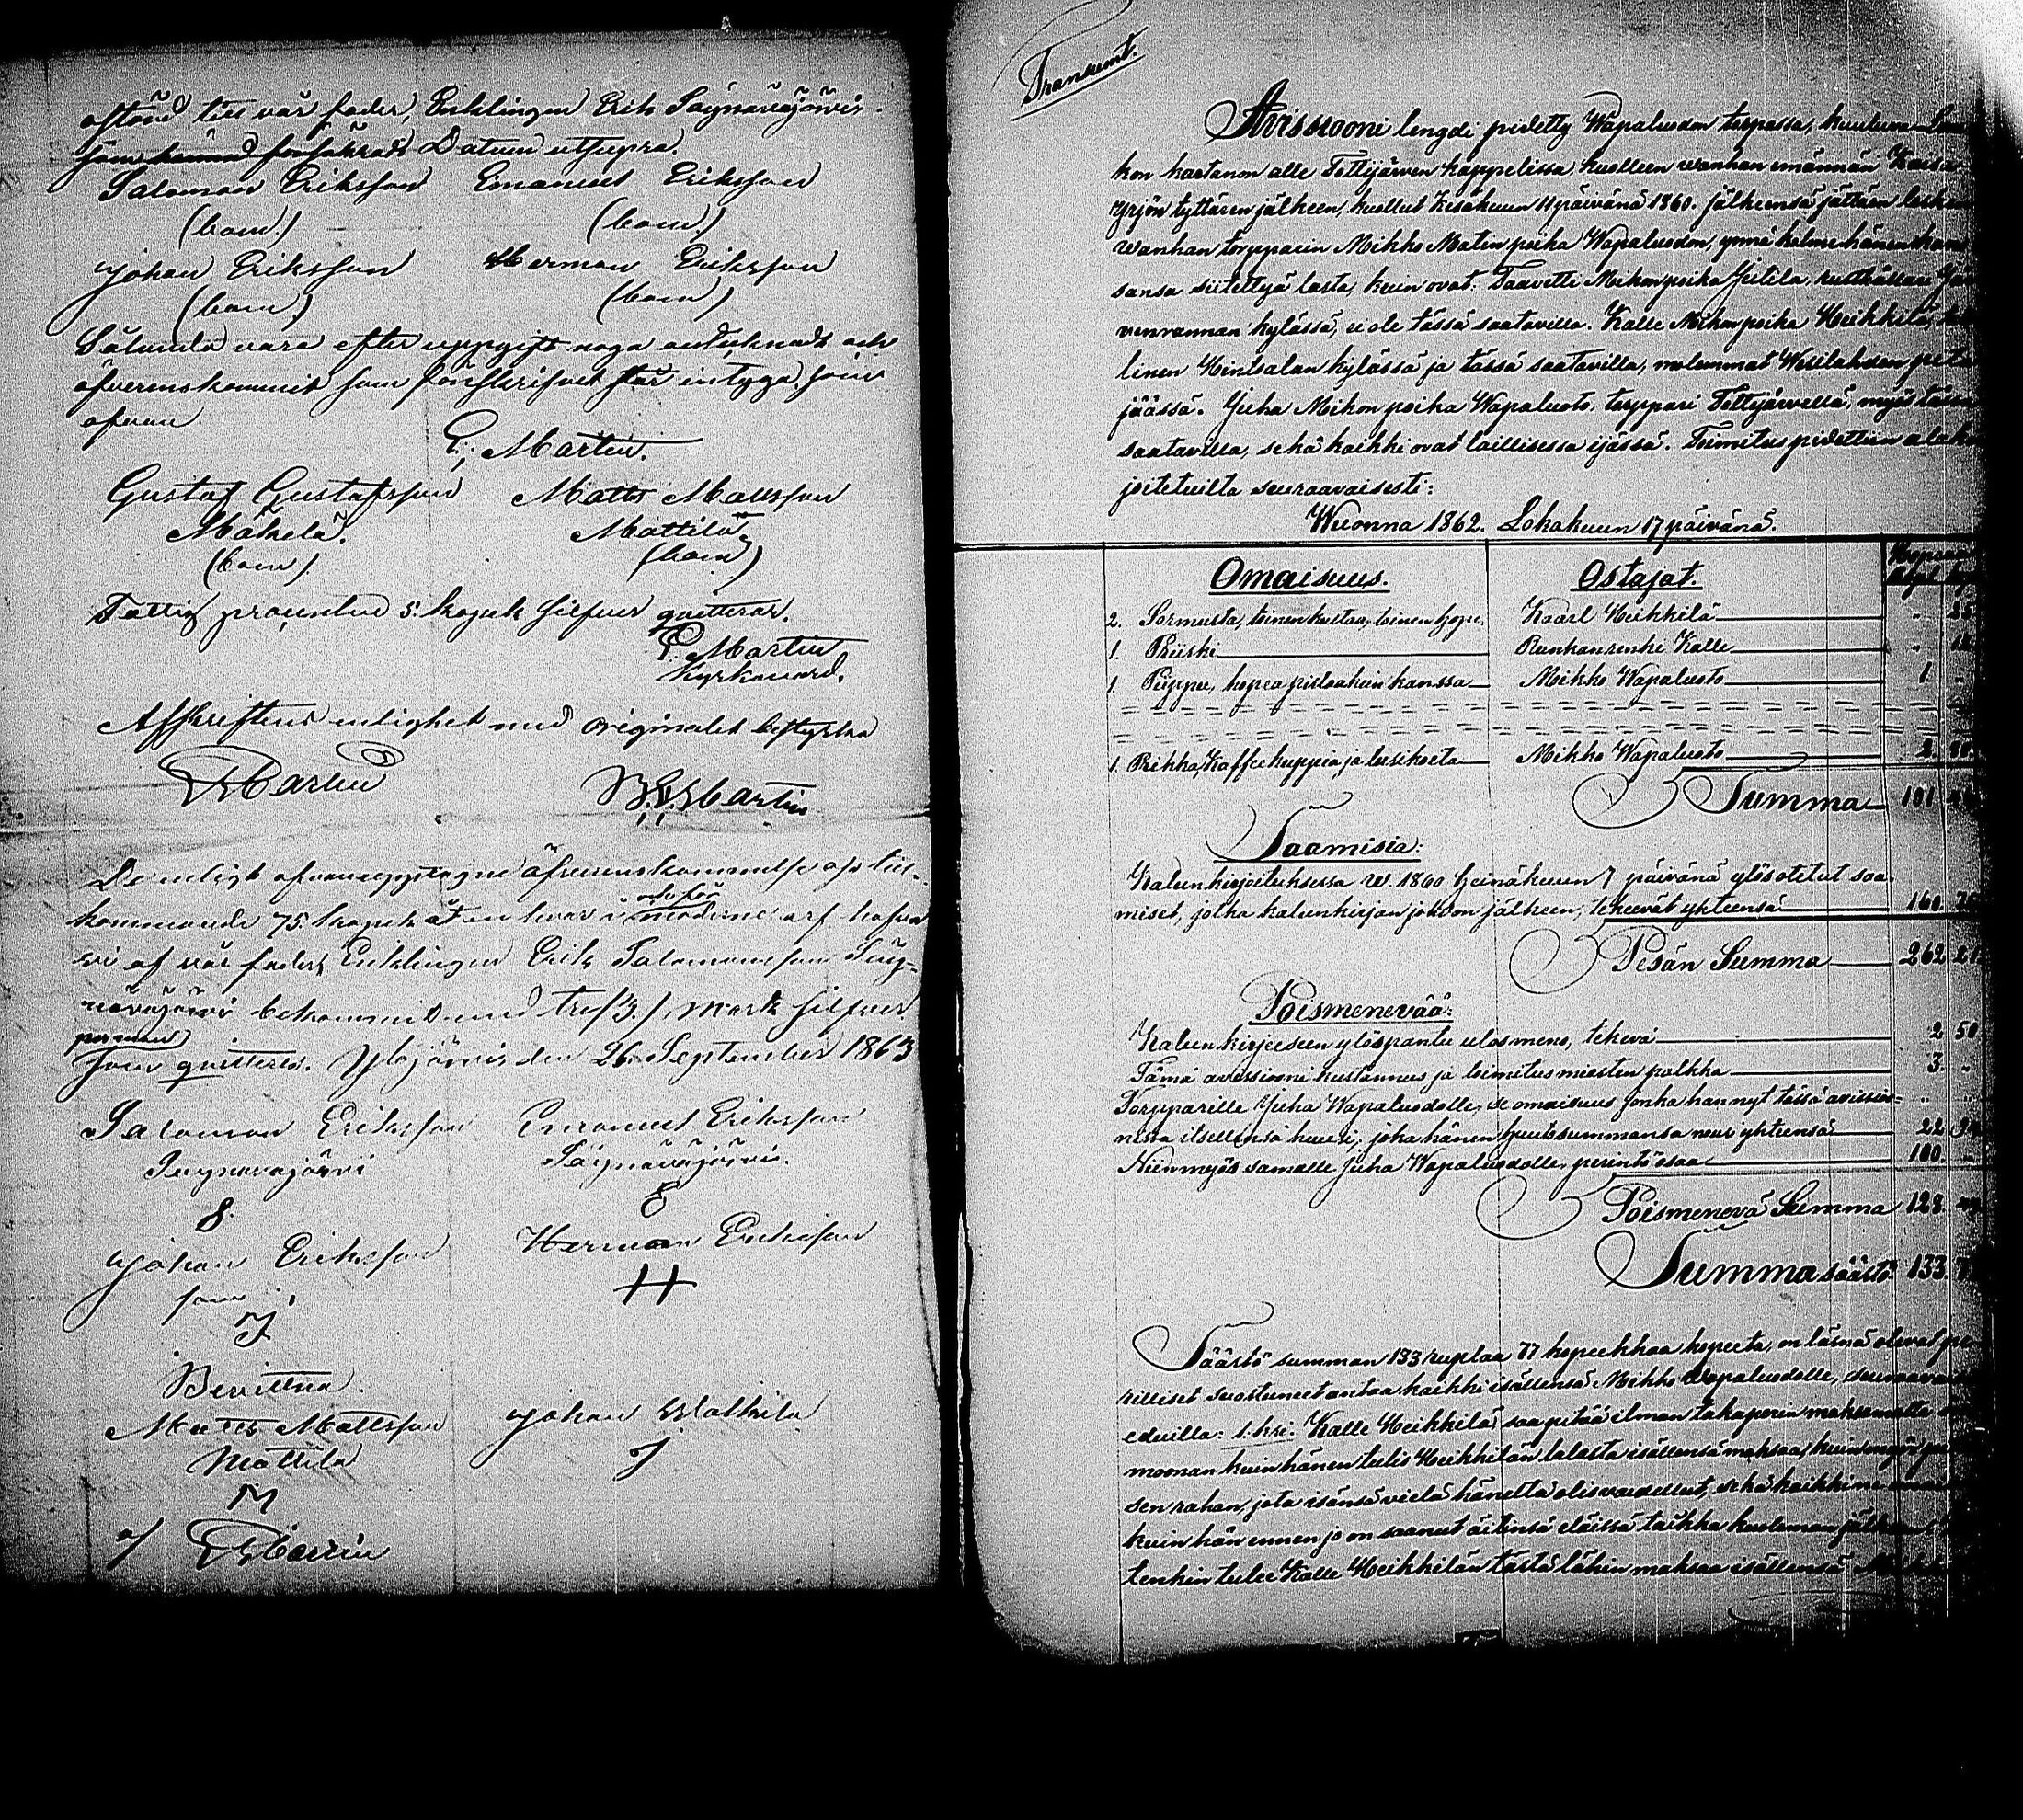 afstånd till vår fader, Enklingen Erik Säynäväjärvi
som härmed försäkrads Datum utsupra.
Salomon Eriksson Emanuel Eriksson
(bom.) (bom.)
Johan Eriksson Herman Eriksson
(bom) (bom)
Sålunda vara efter uppgift noga antecknadt och
öfverenskommit som förskrifvet står intyga som
ofvan
E. Martin.
Gustaf Gustafsson Matts Mattsson
Mäkelä. Mattila
(bom). (bom)
Fattig procenten 5. kopek silfver qvitterar.
E. Martin
Kyrkovärd.
Afskriftens enlighet med originalet bestyrka
E Martin B. E. Martin
De enligt ofvanuppgagne öfverenskommelse oss till-
kommande 75. kopek åt en hvar i moderne arf hafva
vi af vår fader, Enklingen Erik Salomonsson Säy-
näväjärvi bekommit med tre /3./ Mark silfver
per man
som qvitteras. Ylöjärvi, den 26. September 1863
Salomon Eriksson Emanuel Eriksson
Säynäväjärvi Säynäväjärvi.
S. E
Johan Eriksson Herman Eriksson
H
J
Bevittna
Matts Mattsson Johan Mattila
Mattila J
M
af E Martin
Transumt.
Avisiooni lengdi pidetty Wapaluodon torpassa, kuuluva
kon kartanon alle Tottijärven kappelissa, kuolleen wanhan emännän Kaisa
Yrjön tyttären jälkeen, kuollut Kesäkuun 11 päivänä 1860. jälkeensä jättäen lesken
wanhan torpparin Mikko Matin poika Wapaluodon, ynnä kolme hänen kans
sansa siitettyä lasta, kuin ovat: Taavetti Mikon poika Jutila, rusthållari
venrannan kylässä, ei ole tässä saatavilla. Kalle Mikon poika Heikkilä,
linen Hintsalan kylässä ja tässä saatavilla, molemmat Wesilahden pitä
jäässä. Juha Mikon poika Wapaluoto, torppari Tottijärvellä, myös tässä
saatavilla, sekä kaikki ovat laillisessa ijässä. Toimitus pidettiin alakir
joitetuilta seuraavaisesti:
Wuonna 1862. Lokakuun 17 päivänä.
Omaisuus. Ostajat.
2. Sormusta, toinen kultaa, toinen hope. Kaarl Heikkilä " 25
1. Priiski Runhanrenki Kalle "
1. Piippu, hopea pislaakein kanssa Mikko Wapaluoto 1 "
1. Prikka, Kaffeekuppia ja lusikoita Mikko Wapaluoto 2
Summa 101
Saamisia:
Kalunkirjoituksessa w. 1860 Heinäkuun 7 päivänä ylösotetut saa-
miset, jotka kalunkirjan johdon jälkeen, tekevät yhteensä 160.
Pesän Summa 262 21
Poismenevää:
Kalunkirjeeseen ylöspantu ulosmeno, tekevä 2 50
Tämä avissiooni kustannus ja toimitusmiesten palkka 3. "
Torpparille Juha Wapaluodolle, se omaisuus jonka han nyt tässä avissio=
nissa itsellensä huusi, joka hänen huutosummansa nousi yhteensä 22
Niin myös samalle Juha Wapaluodolle, perintöosaa 100. "
Poismenevä Summa 128.
Summa säästö 133.
Säästö summan 133 ruplaa 77 kopeekkaa hopeeta, on läsnä olevat pe
rilliset suostuneet antaa kaikki isällensä Mikko Wapaluodolle, seuraavaisilla
eduilla: 1:ksi. Kalle Heikkilä saa pitää ilman takaperin maksamatta
moonan kuin hänen tulis Heikkilän talosta isällensä maksaa, kuin myös
sen rahan, jota isänsä vielä häneltä olis vaadellut, sekä kaikki ne
kuin hän ennen jo on saanut äitinsä eläissä taikka kuoleman jälkeen
tenkin tulee Kalle Heikkilän tästä lähin maksaa isällensä